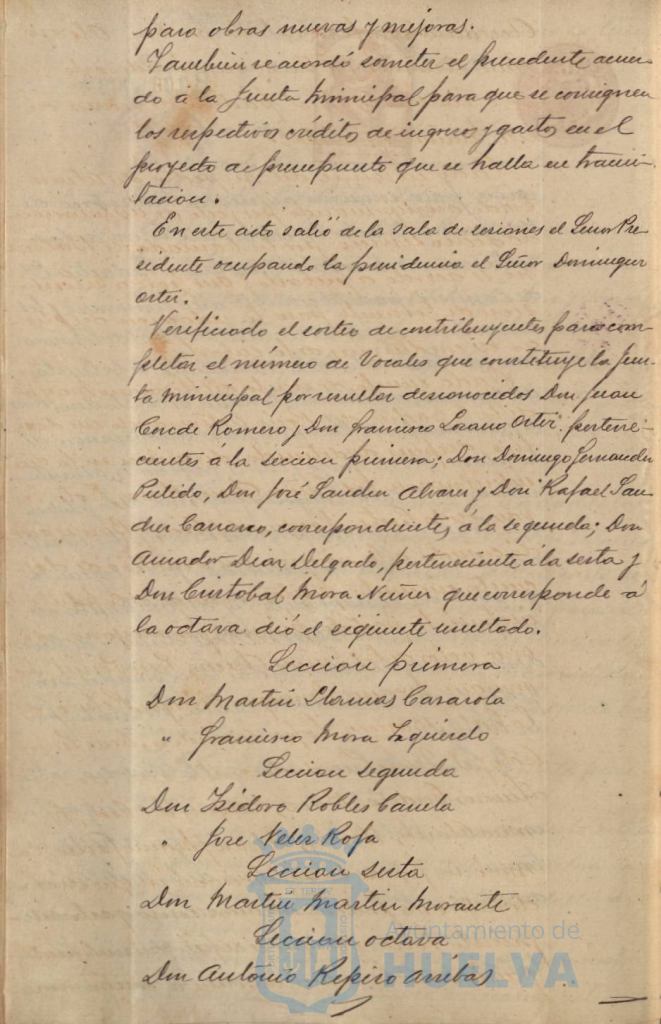 para obras nuevas y mejoras.
Tambien se acordó someter el precedente acuer-
do á la Junta Municipal para que se consignen
los respectivos créditos de ingresos y gastos en el
proyecto de presupuesto que se halla en trami-
tacion.
En este acto salió de la sala de sesiones el Señor Pre-
sidente ocupando la presidencia el Señor Dominguez
Ortiz.
Verificado el sorteo de contribuyentes para com-
pletar el número de Vocales que constituye la Jun-
ta Municipal por resultar desconocidos Don Juan
Conde Romero y Don Francisco Lozano Ortiz pertene-
cientes á la seccion primera; Don Domingo Fernandez
Pulido, Don José Sanchez Alvarez y Don Rafael San-
chez Carrasco, correspondientes á la segunda; Don
Amador Diaz Delgado, perteneciente á la sesta y
Don Cristobal Mora Nuñez que corresponde á
la octava dió el siguiente resultado.
Seccion primera
Don Martin Llamas Casarola
" Francisco Mora Izquierdo
Seccion segunda
Don Isidoro Robles Canela
" José Velez Rofa
Seccion sesta
Don Martin Martin Morante
Seccion octava
Don Antonio Repiso Arribas
Ayuntamiento de
HUELVA